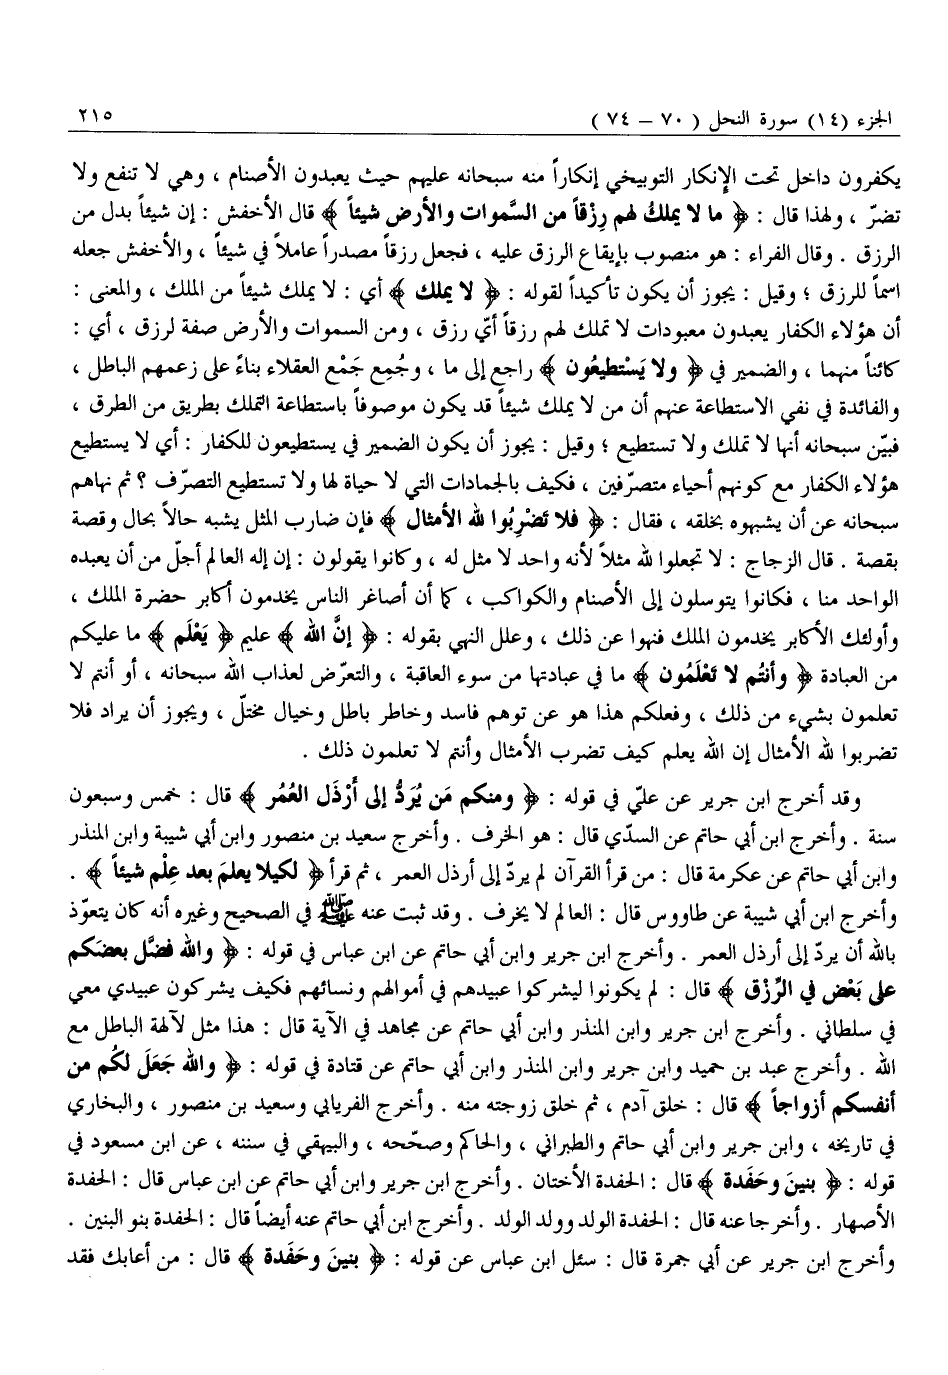 الجزء (١٤) سورة النحل ( ٧٠ – ٧٤ ) ٢١٥
يكفرون داخل تحت الإنكار التوبيخي إنكاراً منه سبحانه عليهم حيث يعبدون الأصنام ، وهي لا تنفع ولا
تضرّ ، ولهذا قال : ﴿ ما لا يملكُ لهم رِزْقاً من السَّموات والأرض شيئاً ﴾ قال الأخفش : إن شيئاً بدل من
الرزق . وقال الفراء : هو منصوب بإيقاع الرزق عليه ، فجعل رزقاً مصدراً عاملاً في شيئاً ، والأخفش جعله
اسماً للرزق ؛ وقيل : يجوز أن يكون تأكيداً لقوله : ﴿ لا يملك ﴾ أي : لا يملك شيئاً من الملك ، والمعنى :
أن هؤلاء الكفار يعبدون معبودات لا تملك لهم رزقاً أيّ رزق ، ومن السموات والأرض صفة لرزق ، أي :
كائناً منهما ، والضمير في ﴿ ولا يَسْتطيعُون ﴾ راجع إلى ما ، وجُمِع جَمْع العقلاء بناءً على زعمهم الباطل ،
والفائدة في نفي الاستطاعة عنهم أن من لا يملك شيئاً قد يكون موصوفاً باستطاعة التملك بطريق من الطرق ،
فبيّن سبحانه أنها لا تملك ولا تستطيع ؛ وقيل : يجوز أن يكون الضمير في يستطيعون للكفار : أي لا يستطيع
هؤلاء الكفار مع كونهم أحياء متصرّفين ، فكيف بالجمادات التي لا حياة لها ولا تستطيع التصرّف ؟ ثم نهاهم
سبحانه عن أن يشبهوه بخلقه ، فقال : ﴿ فلا تَضْرِبُوا لله الأمثال ﴾ فإن ضارب المثل يشبه حالاً بحال وقصة
بقصة . قال الزجاج : لا تجعلوا لله مثلاً لأنه واحد لا مثل له ، وكانوا يقولون : إن إله العالم أجلّ من أن يعبده
الواحد منا ، فكانوا يتوسلون إلى الأصنام والكواكب ، كما أن أصاغر الناس يخدمون أكابر حضرة الملك ،
وأولئك الأكابر يخدمون الملك فنهوا عن ذلك ، وعلل النهي بقوله : ﴿ إنَّ الله ﴾ عليم ﴿ يَعْلَم ﴾ ما عليكم
من العبادة ﴿ وأنتُم لا تَعْلَمُون ﴾ ما في عبادتها من سوء العاقبة ، والتعرّض لعذاب الله سبحانه ، أو أنتم لا
تعلمون بشيء من ذلك ، وفعلكم هذا هو عن توهم فاسد وخاطر باطل وخيال مختلّ ، ويجوز أن يراد فلا
تضربوا لله الأمثال إن الله يعلم كيف تضرب الأمثال وأنتم لا تعلمون ذلك .
وقد أخرج ابن جرير عن عليّ في قوله : ﴿ ومنكم مَن يُرَدُّ إلى أرْذَل العُمُر ﴾ قال : خمس وسبعون
سنة . وأخرج ابن أبي حاتم عن السدّي قال : هو الخرف . وأخرج سعيد بن منصور وابن أبي شيبة وابن المنذر
وابن أبي حاتم عن عكرمة قال : من قرأ القرآن لم يردّ إلى أرذل العمر ، ثم قرأ ﴿ لكيلا يعلمَ بعد عِلْم شيئاً ﴾ .
وأخرج ابن أبي شيبة عن طاووس قال : العالم لا يخرف . وقد ثبت عنه ﷺ في الصحيح وغيره أنه كان يتعوّذ
بالله أن يردّ إلى أرذل العمر . وأخرج ابن جرير وابن أبي حاتم عن ابن عباس في قوله : ﴿ والله فضَّل بعضَكم
على بَعْض في الرِّزْق ﴾ قال : لم يكونوا ليشركوا عبيدهم في أموالهم ونسائهم فكيف يشركون عبيدي معي
في سلطاني . وأخرج ابن جرير وابن المنذر وابن أبي حاتم عن مجاهد في الآية قال : هذا مثل لآلهة الباطل مع
الله . وأخرج عبد بن حميد وابن جرير وابن المنذر وابن أبي حاتم عن قتادة في قوله : ﴿ والله جَعَلَ لكُم من
أنفسكم أزواجاً ﴾ قال : خلق آدم ، ثم خلق زوجته منه . وأخرج الفريابي وسعيد بن منصور ، والبخاري
في تاريخه ، وابن جرير وابن أبي حاتم والطبراني ، والحاكم وصحّحه ، والبيهقي في سننه ، عن ابن مسعود في
قوله : ﴿ بنينَ وحَفَدة ﴾ قال : الحفدة الأختان . وأخرج ابن جرير وابن أبي حاتم عن ابن عباس قال : الحفدة
الأصهار . وأخرجا عنه قال : الحفدة الولد وولد الولد . وأخرج ابن أبي حاتم عنه أيضاً قال : الحفدة بنو البنين .
وأخرج ابن جرير عن أبي جمرة قال : سئل ابن عباس عن قوله : ﴿ بنينَ وحَفَدة ﴾ قال : من أعابك فقد